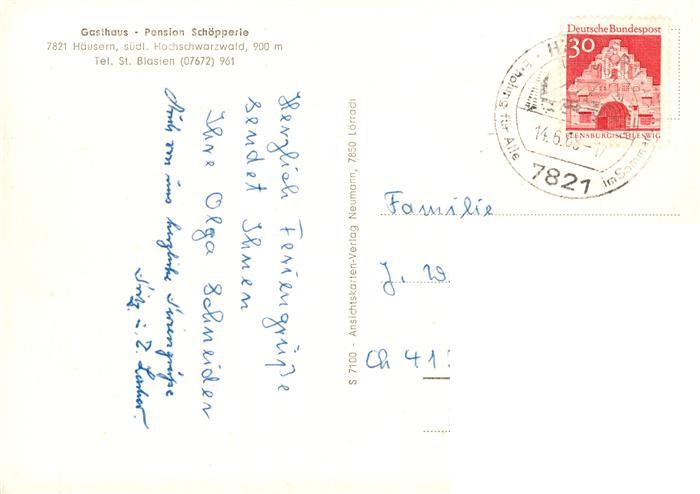 Gasthaus - Pension Schöpperle
7821 Häusern, südl. Hochschwarzwald, 900 m
Tel. St. Blasien (07672) 961
Herzlich Feriengrüße
sendet Ihnen
Ihre Olga Schneider
Auch von uns herzliche Feriengrüße
Fritz u.
S 7100 - Ansichtskarten-Verlag Neumann, 7850 Lörrach
Deutsche Bundespost
30
FLENSBURG/SCHLESWIG
Erholung für Alle
14.6.68
7821
im Sommer
Familie
J. W
Ch 41